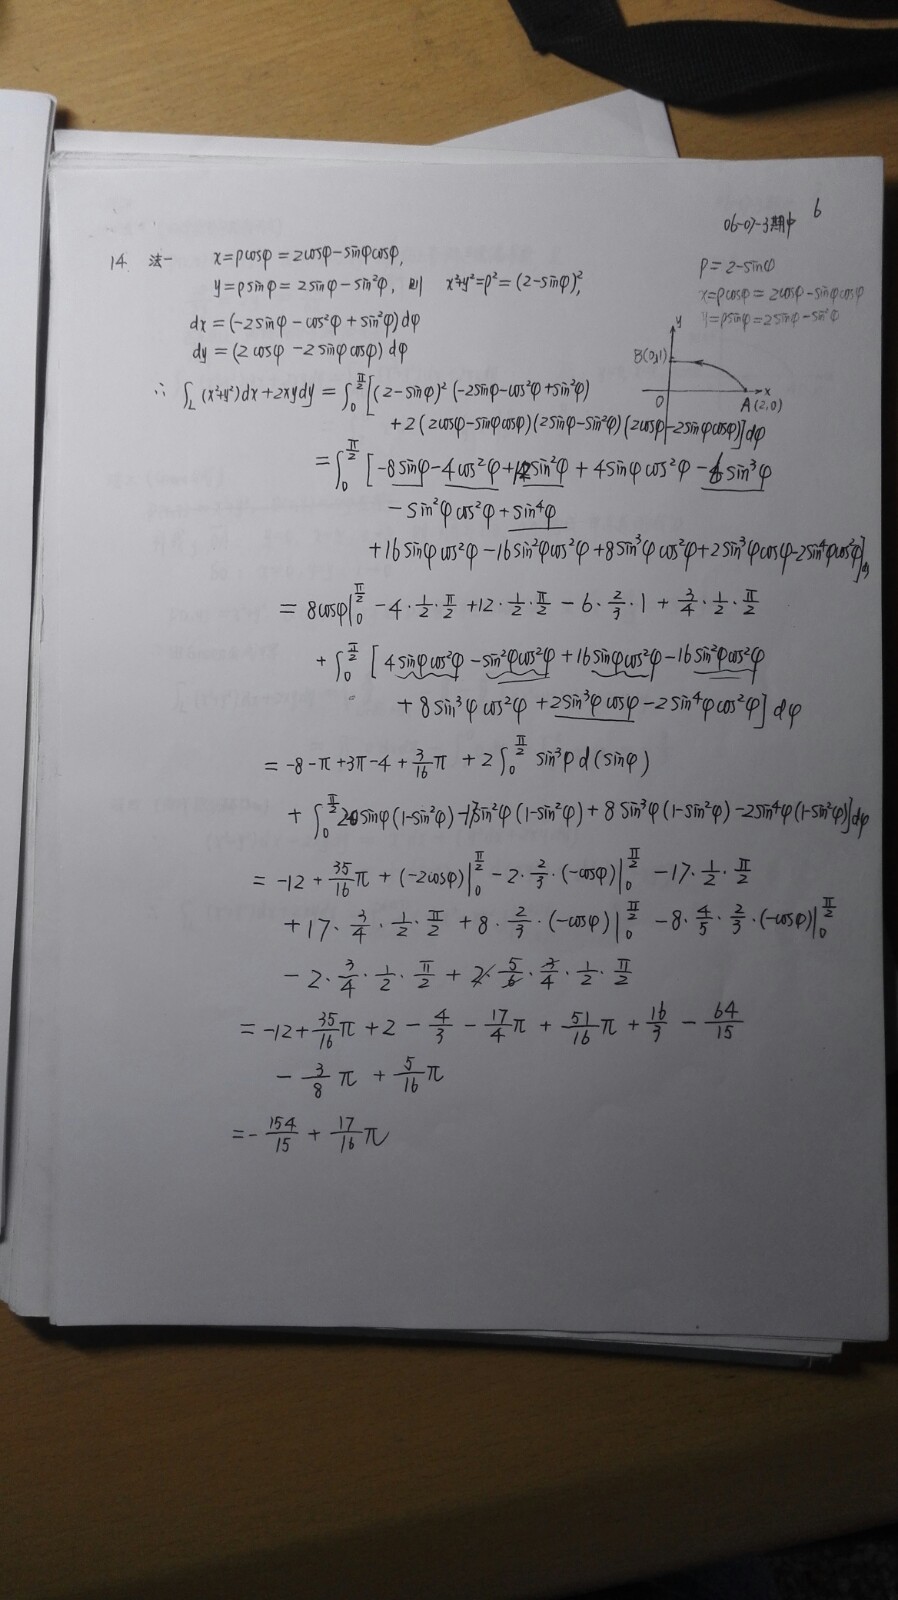 06-07-3期中 6
14. 法一 x=ρcosφ=2cosφ-sinφcosφ,
y=ρsinφ=2sinφ-sin²φ, 则 x²+y²=ρ²=(2-sinφ)²,
ρ=2-sinφ
x=ρcosφ=2cosφ-sinφcosφ
y=ρsinφ=2sinφ-sin²φ
dx=(-2sinφ-cos²φ+sin²φ)dφ
dy=(2cosφ-2sinφcosφ)dφ
y
B(0,1)
O A(2,0) x
∴ ∫_L (x²+y²)dx+2xydy = ∫_0^{π/2} [(2-sinφ)²(-2sinφ-cos²φ+sin²φ)
+2(2cosφ-sinφcosφ)(2sinφ-sin²φ)(2cosφ-2sinφcosφ)]dφ
= ∫_0^{π/2} [-8sinφ-4cos²φ+12sin²φ+4sinφcos²φ-6sin³φ
-sin²φcos²φ+sin⁴φ
+16sinφcos²φ-16sin²φcos²φ+8sin³φcos²φ+2sin³φcosφ-2sin⁴φcos²φ]dφ
= 8cosφ|_0^{π/2} -4·1/2·π/2+12·1/2·π/2-6·2/3·1+3/4·1/2·π/2
+ ∫_0^{π/2} [4sinφcos²φ-sin²φcos²φ+16sinφcos²φ-16sin²φcos²φ
+8sin³φcos²φ+2sin³φcosφ-2sin⁴φcos²φ]dφ
= -8-π+3π-4+3/16π+2∫_0^{π/2} sin³φd(sinφ)
+ ∫_0^{π/2} 20sinφ(1-sin²φ)-17sin²φ(1-sin²φ)+8sin³φ(1-sin²φ)-2sin⁴φ(1-sin²φ)]dφ
= -12+35/16π+(-2cosφ)|_0^{π/2}-2·2/3·(-cosφ)|_0^{π/2}-17·1/2·π/2
+17·3/4·1/2·π/2+8·2/3·(-cosφ)|_0^{π/2}-8·4/5·2/3·(-cosφ)|_0^{π/2}
-2·3/4·1/2·π/2+2·5/6·3/4·1/2·π/2
= -12+35/16π+2-4/3-17/4π+51/16π+16/3-64/15
-3/8π+5/16π
= -154/15+17/16π